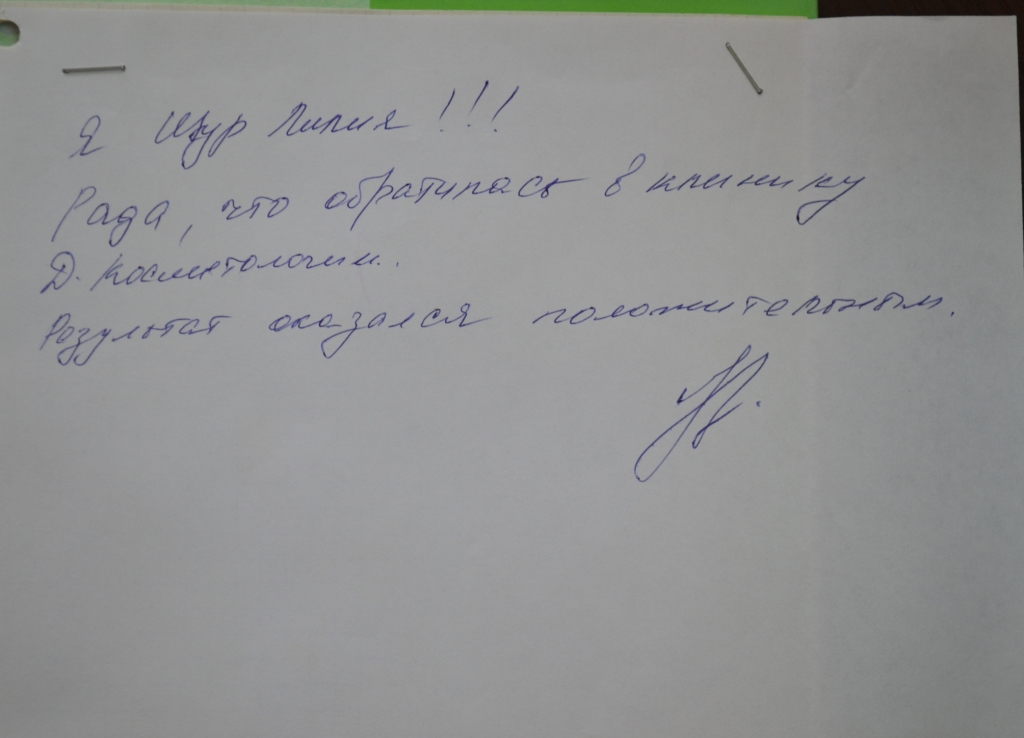 Я Щур Лилия!!!
Рада, что обратилась в клинику
Д. Косметологии.
Результат оказался положительным.